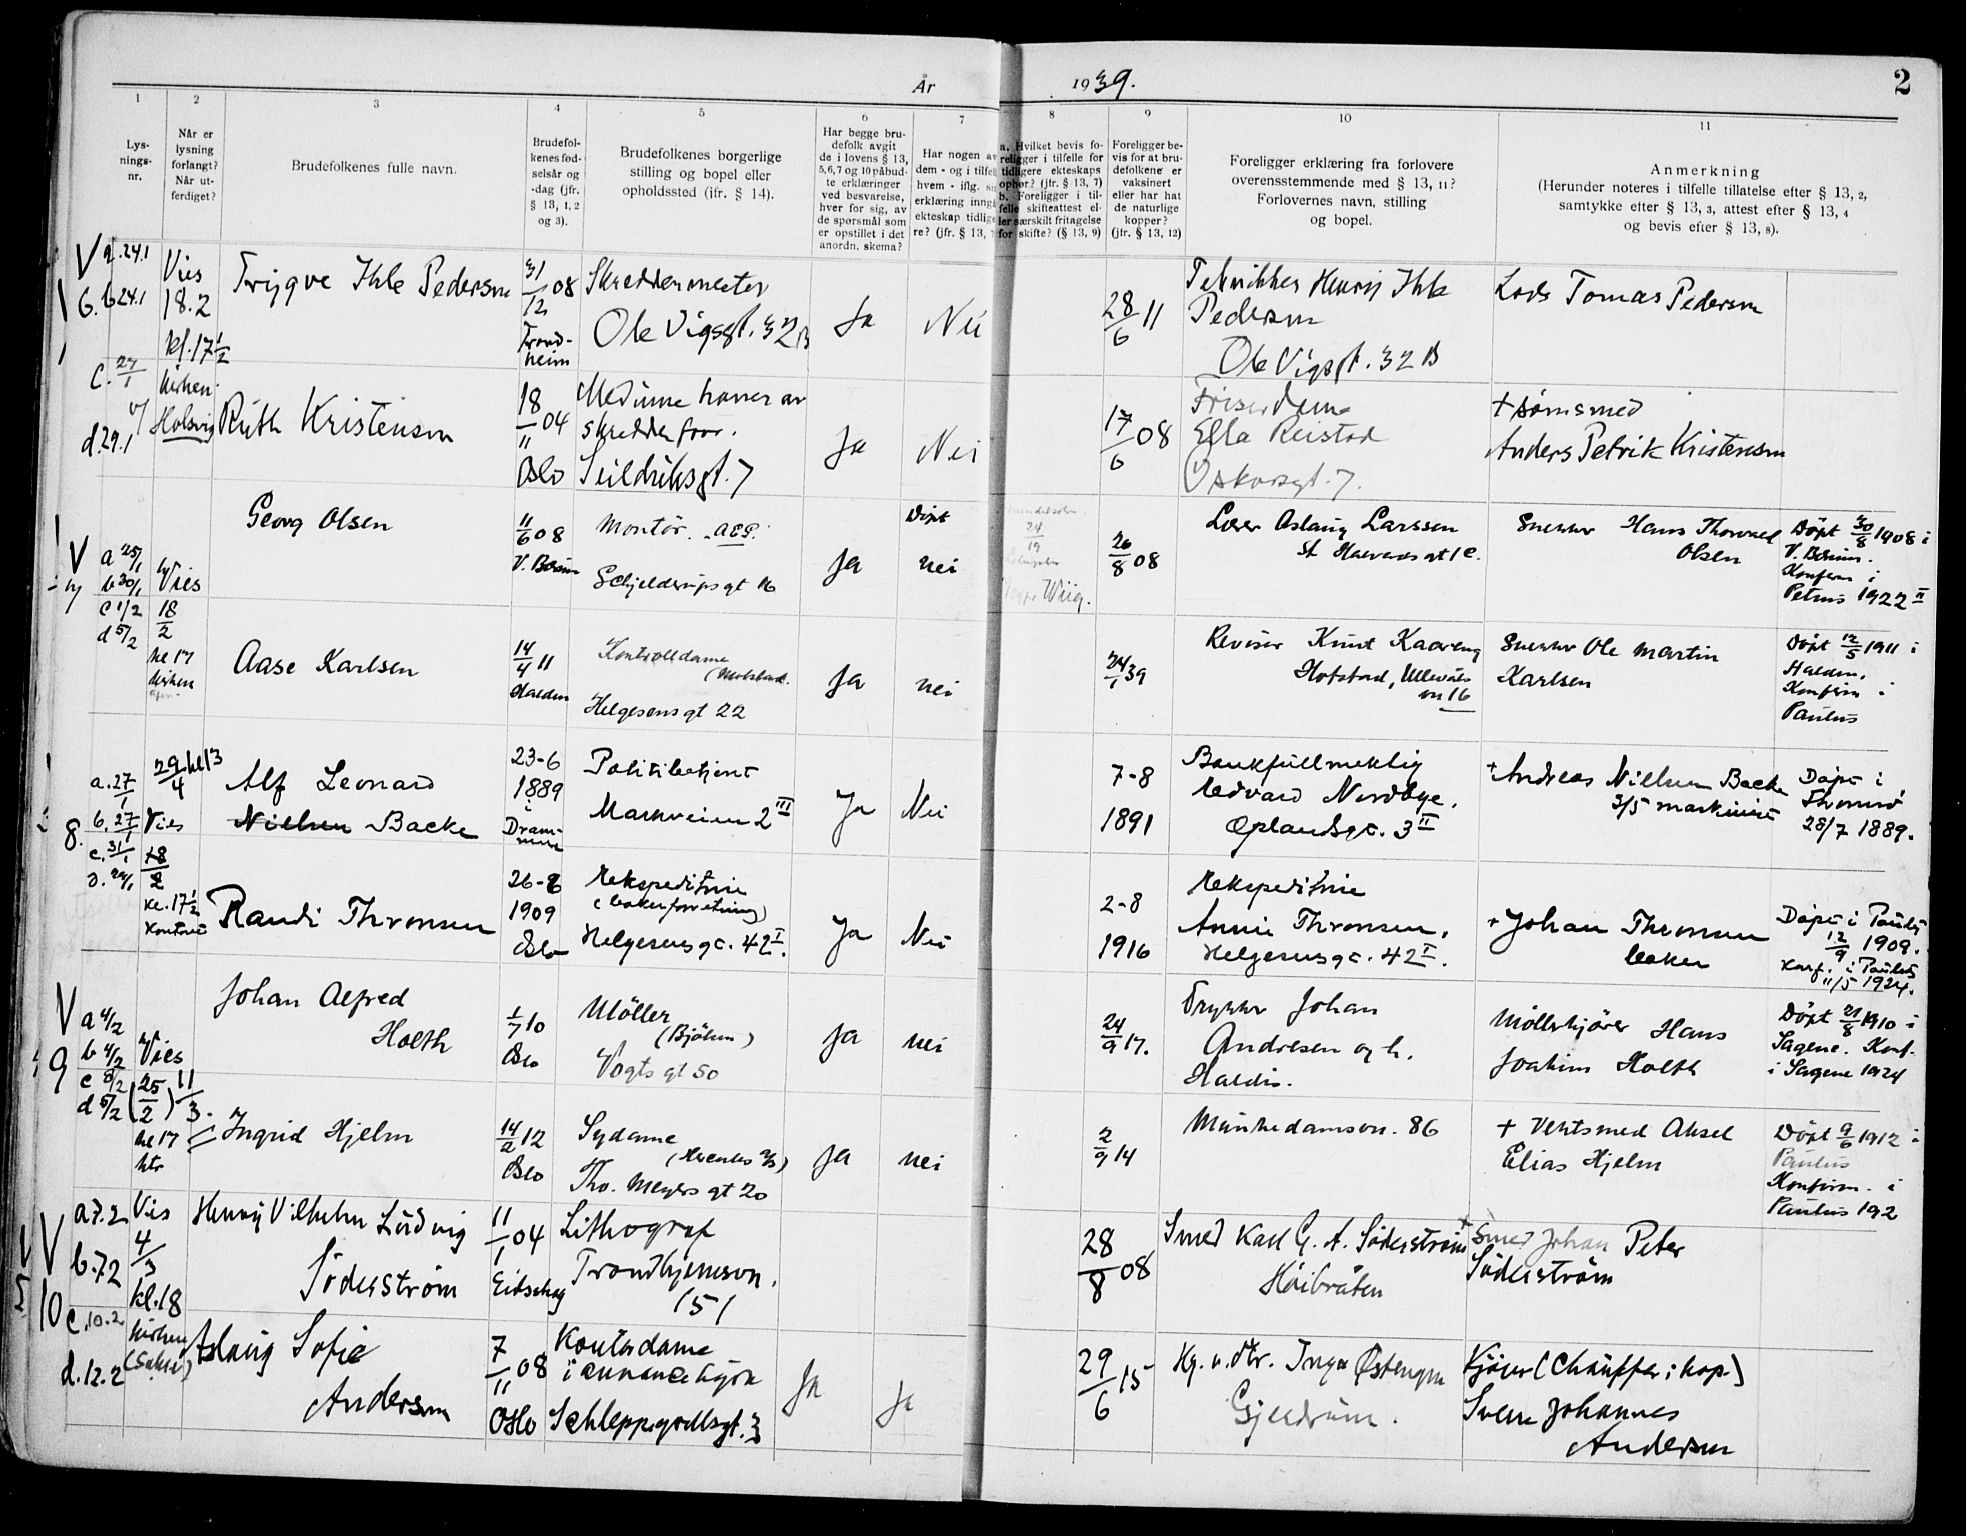 År
1939.
2
1
2
3
4
5
6
7
8
9
10
11
Lys-
nings-
nr.
Når er
lysning
forlangt?
Når ut-
ferdiget?
Brudefolkenes fulle navn.
Brudefol-
kenes fød-
selsår og
-dag (jfr.
§ 13, 1, 2
og 3).
Brudefolkenes borgerlige
stilling og bopel eller
opholdssted (ifr. § 14).
Har begge bru-
defolk avgit
de i lovens § 13,
5, 6, 7 og 10 påbud-
te erklæringer
ved besvarelse,
hver for sig, av
de spørsmål som
er opstillet i det
anordn. skema?
Har nogen av
dem - og i tilfelle
hvem - iflg.
erklæring inngå
ekteskap tidlige
re? (jfr. § 13, 7
a. Hvilket bevis fo-
religger i tilfelle for
tidligere ekteskaps
ophør? (jfr. § 13, 7)
b. Foreligger i til-
felle skifteattest el-
ler særskilt fritagelse
for skifte? (§ 13, 9)
Foreligger be-
vis for at bru-
defolkene er
vaksinert
eller har hat
de naturlige
kopper?
(jfr. § 13, 12)
Foreligger erklæring fra forlovere
overensstemmende med § 13, 11?
Forlovernes navn, stilling
og bopel.
Anmerkning
(Herunder noteres i tilfelle tillatelse efter § 13, 2,
samtykke efter § 13, 3, attest efter § 13, 4
og bevis efter § 13, 8).
V a. 24.1
6. b 24.1
c. 27/1
d. 29.1
Vies
18.2
kl. 17½
kirken
Trygve Ihle Pedersen
31/12 08
Trond-
heim
Skreddermester
Ole Vigsgt. 32 B
Ja
Nei
28/6 11
Henry Ihle
Pedersen
Ole Vigsgt. 32 B
Los Tomas Pedersen
Ruth Kristensen
18/11 04
Oslo
skredderforr.
Seildüksgt. 7
Ja
Nei
17/6 08
Friserdame
Ella Reistad
Oskarsgt. 7.
+ Sømsmed
Anders Petrik Kristensen
V
7
a 25/1
b 30/1
c 1/2
d 5/2
Vies
18/2
kl 17
kirken
Georg Olsen
11/6 08
V. Bærum
Montør. A.E.G.
Schjelderups gt 16
Ja
Døpt
nei
24/19
Wiig.
26/8 08
Aslaug Larssen
St Halvards gt 1 c.
Snekker Hans Thorvald
Olsen
Døpt 30/8 1908 i
V. Bærum.
Konfirm i
Petrus 1922 II
Aase Karlsen
14/4 11
Halden
Kontrolldame
Helgesens gt 22
Ja
nei
24/1 39
Revisor Knut Kaareng
Hofstad, Ullevåls
vn 16
Snekker Ole Martin
Karlsen
Døpt 12/5 1911 i
Halden.
Konfirm i
Paulus
8.
a. 27/1
b. 27/1
c. 31/1
29/4 kl 13
Vies
18/2
kl. 17½
kontoret
Alf Leonard
Nielsen Backe
23-6
1889
i
Dram-
men
Politibetjent
Markveien 2 III
Ja
Nei
7-8
1891
Bankfullmektig
Edvard Nordbye.
Oplandsgt. 3 II
+ Andreas Nielsen Backe
maskinist
Døpt i
28/7 1889.
Randi Thronsen
26-8
1909
Oslo
Ekspeditrise
(bakerforretning)
Helgesens gt. 42 I.
Ja
Nei
2-8
1916
Ekspeditrise
Annie Thronsen,
Helgesens gt. 42 I.
+ Johan Thronsen
baker
Døpt i Paulus
12/9 1909.
Konf. i Paulus
11/5 1924.
V
9
a 4/2
b 4/2
c 8/2
d 5/2
Vies
(25/2) 11/3.
kl 17
ktr
Johan Alfred
Holth
1/7 10
Oslo
Møller
(Bjølsen)
Vogts gt 50
Ja
nei
24/9 17.
Trykker Johan
Andresen og h.
Haldis.
Møllekjører Hans
Joakim Holth
Døpt 21/8 1910 i
Sagene. Konf.
i Sagene 1924
Ingrid Hjelm
14/2 12
Oslo
Sydame
(Hercules A/S)
Tho. Meyers gt 20
Ja
nei
2/9 14
Munkedamsvn. 86
+ Aksel
Elias Hjelm
Døpt 9/6 1912 i
Paulus
Konfirm. i
Paulus 192
V
10
a 7.2
b. 7.2
c. 10.2
d. 12.2
Vies
4/3
kl. 18
kirken
Henry Vilhelm Ludvig
Söderström
11/1 04
Lithograf
Trondhjemsvn.
151
28/8 08
Smed Karl G. A. Söderström
Høibråten
+ Smed Johan Peter
Söderström
Aslaug Sofie
Andersen
7/11 08
Oslo
Kontordame
i annoncebyrå
Schleppegrellsgt. 3
Ja
Ja
29/6 15
Inga Østengen
Gjerdrum.
Kjører (Chauffør i kop.)
Svein Johannes
Andersen